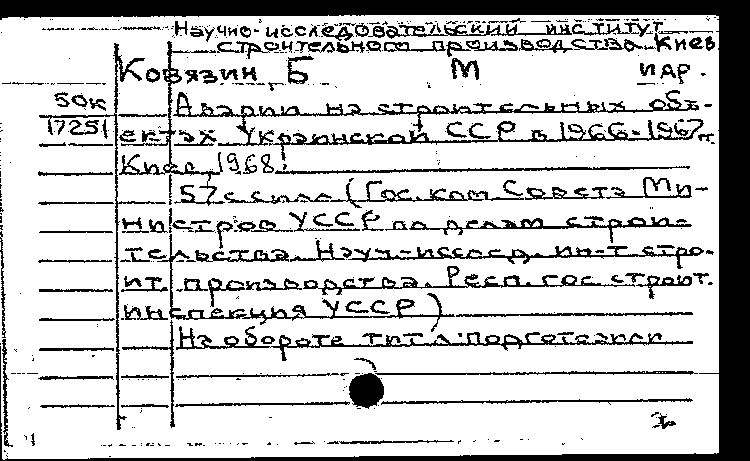 Научно-исследовательский институт
строительного производства. Киев
Ковязин, Б М и др.
50к
Аварии на строительных объ-
17251
ектах Украинской ССР в 1966-1967гг.
Киев, 1968.
57с силл (Гос. ком Совета Ми-
нистров УССР по делам строи-
тельства. Науч-исслед. ин-т стро-
ит. производства. Респ. гос. строит.
инспекция УССР)
На обороте тит л: подготовили